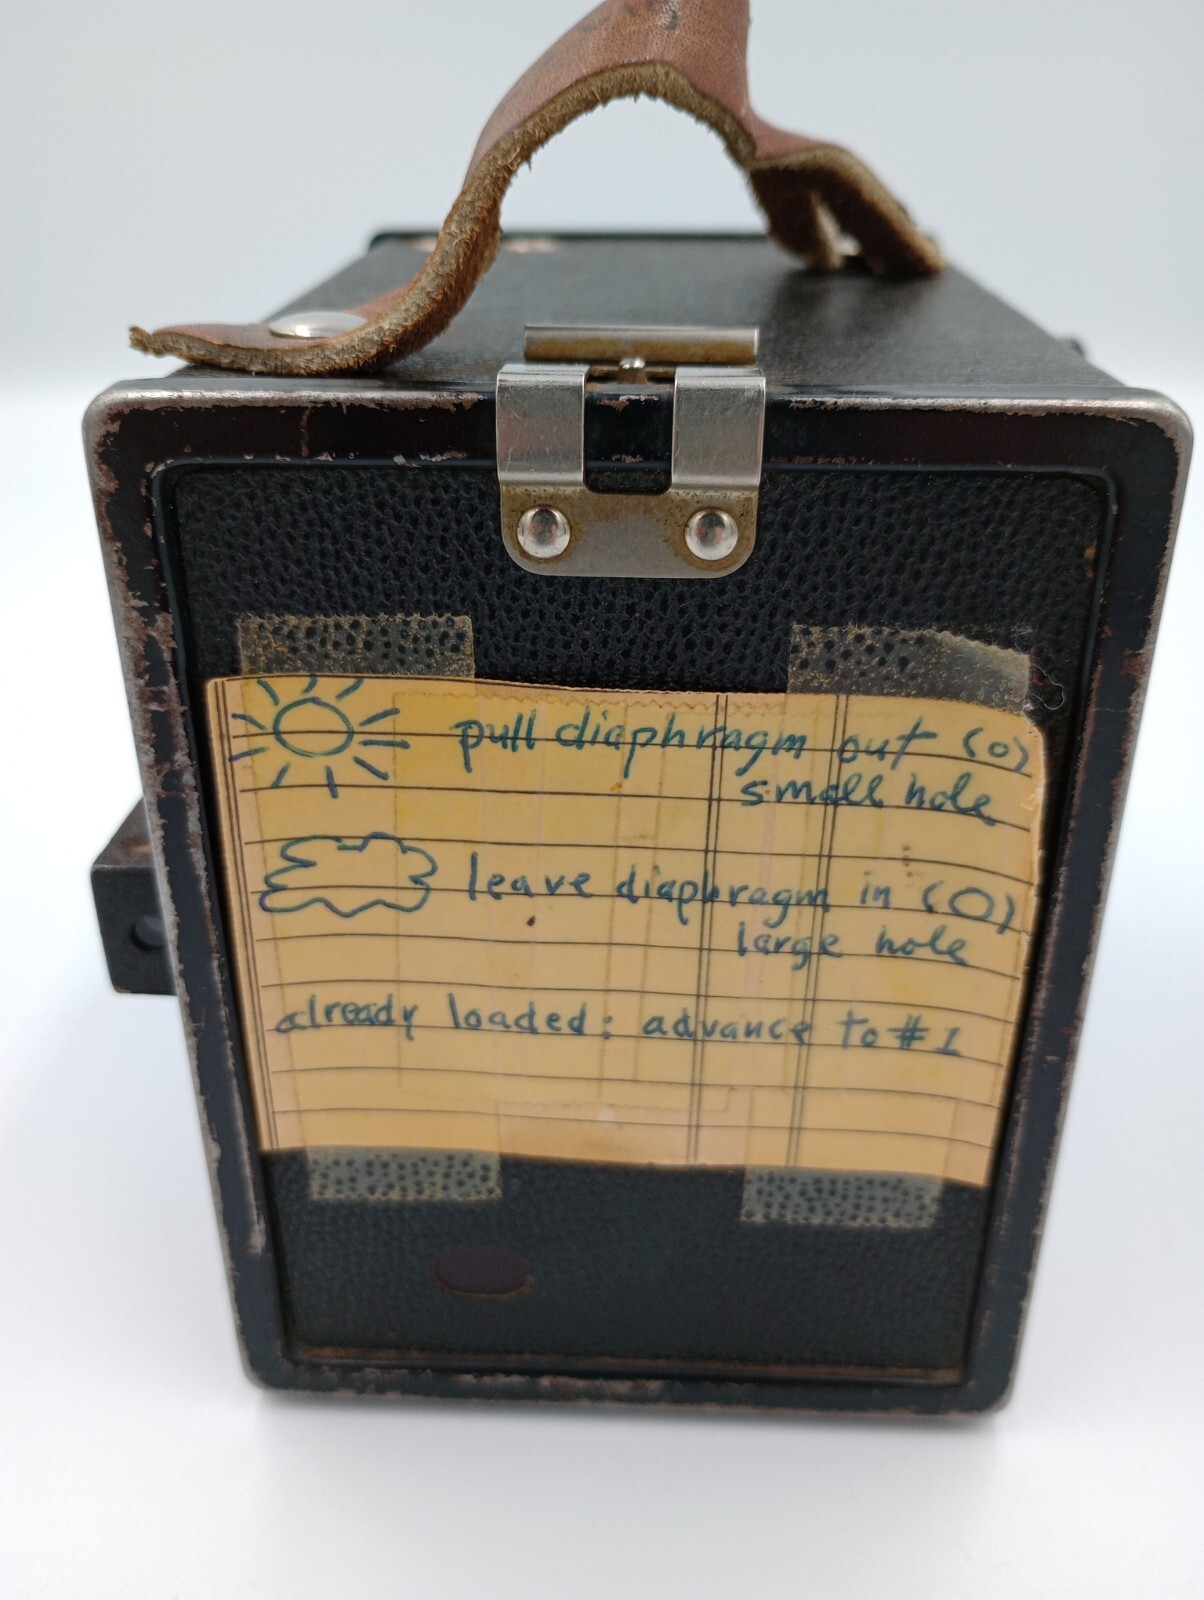 pull diaphragm out (o)
small hole
leave diaphragm in (O)
large hole
already loaded: advance to #1